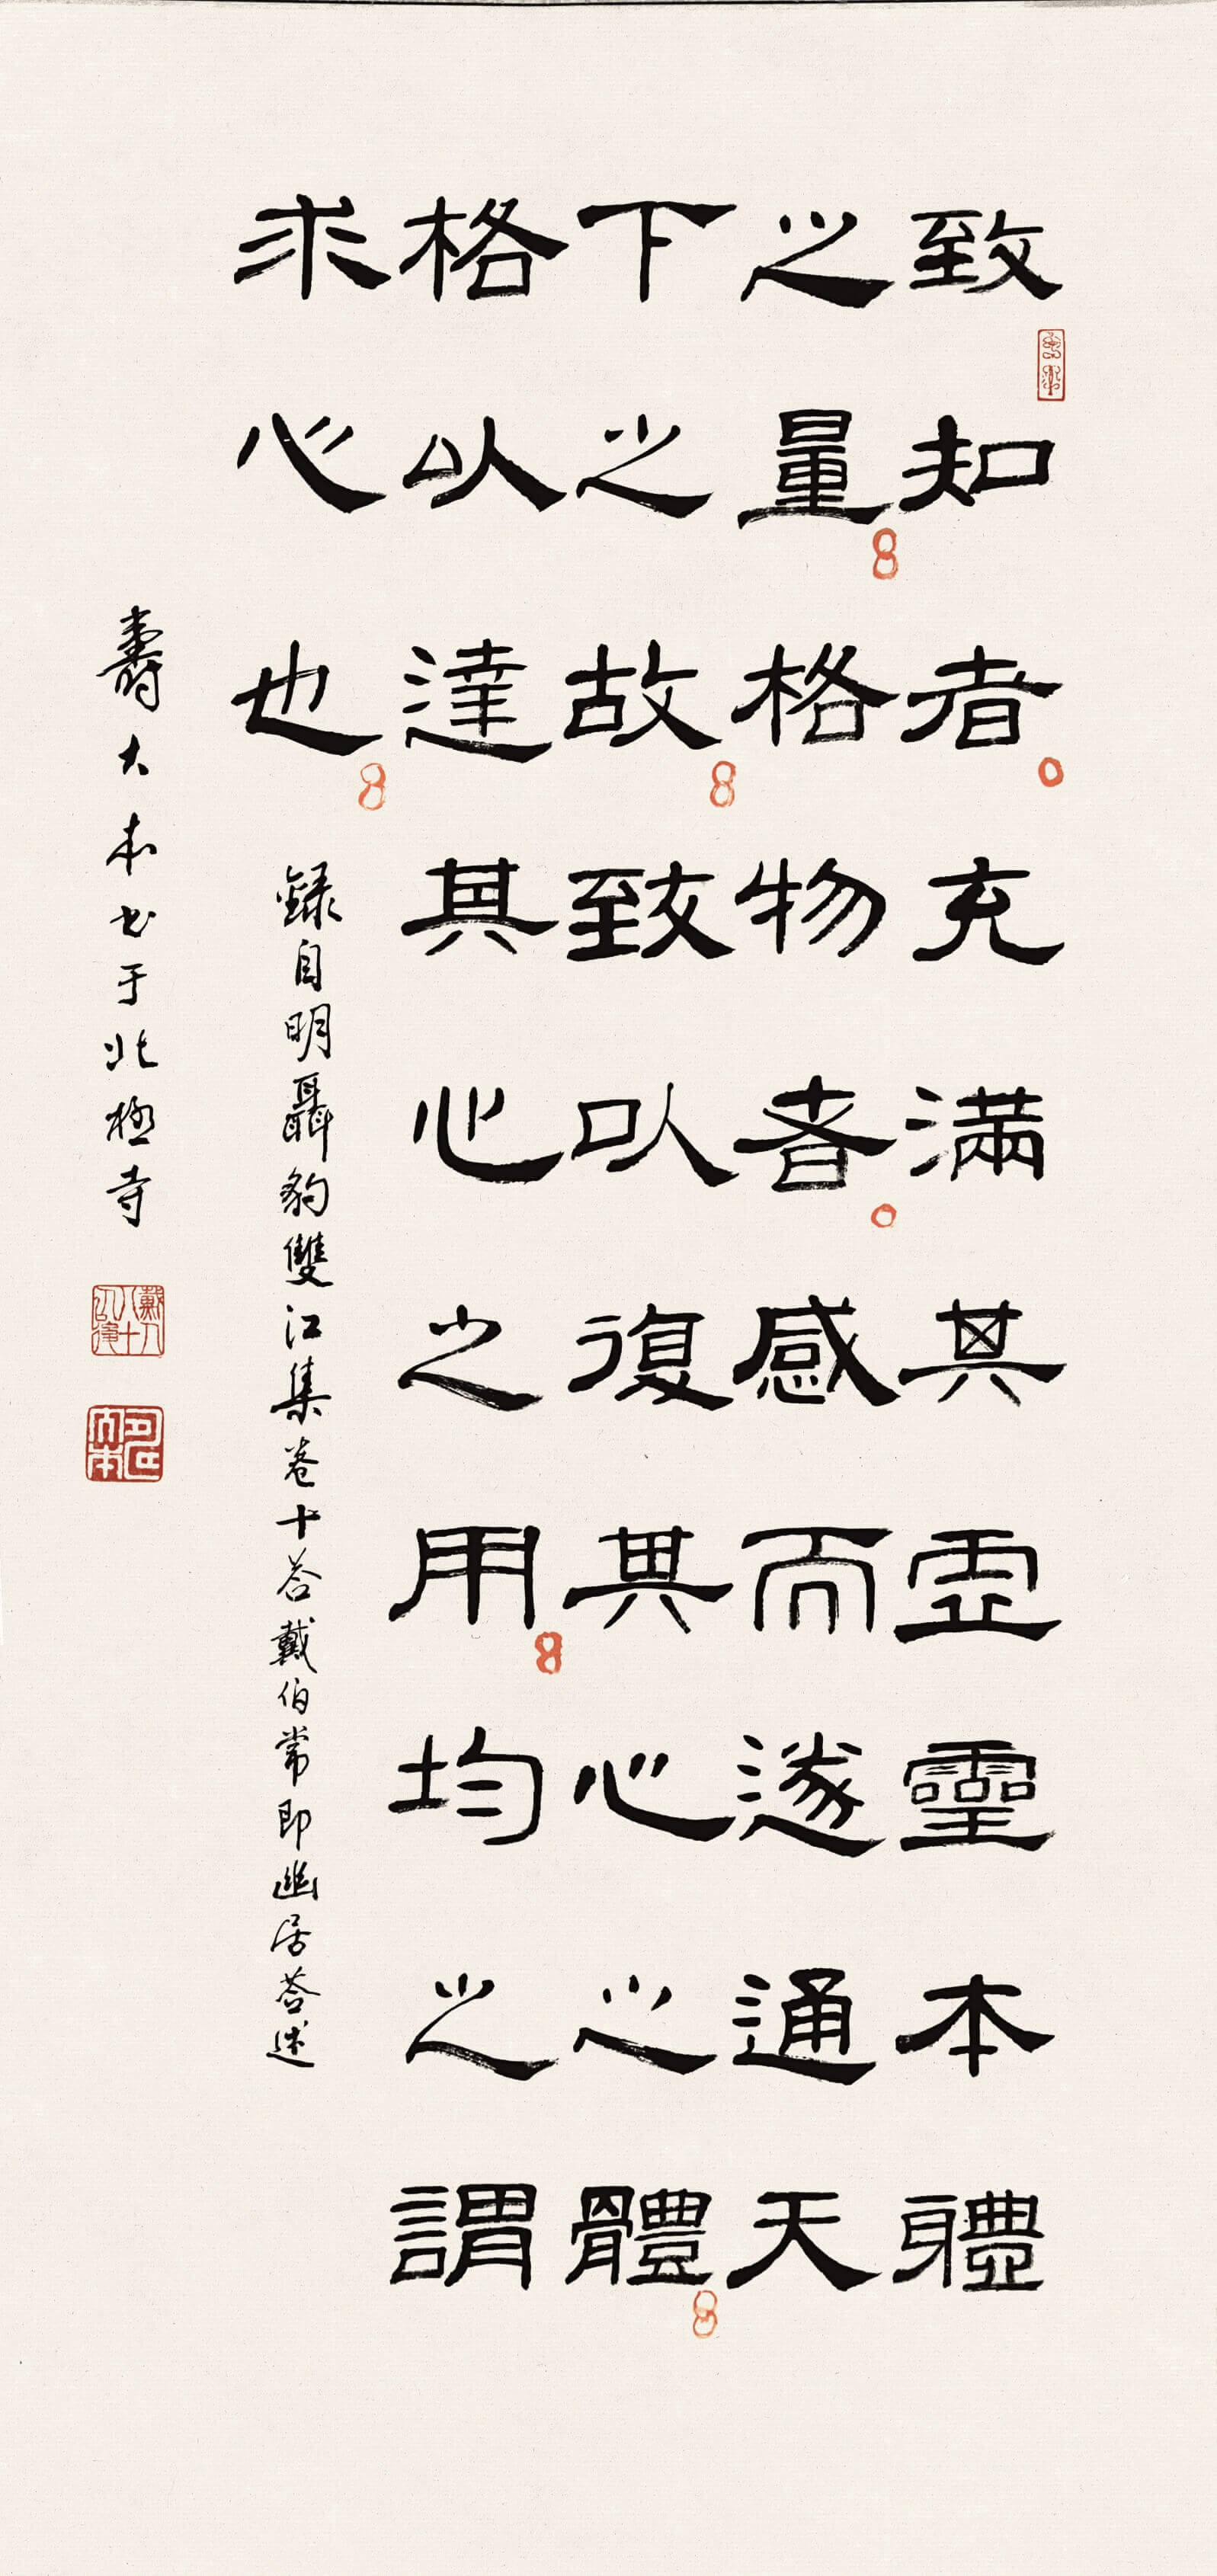 致知者充滿其虛靈本體
之量格物者感而遂通天
下之故致以復其心之體
格以達其心之用均之謂
求心也
錄自明聶豹雙江集卷十荅戴伯常即幽居荅述
壽大本書于北極寺